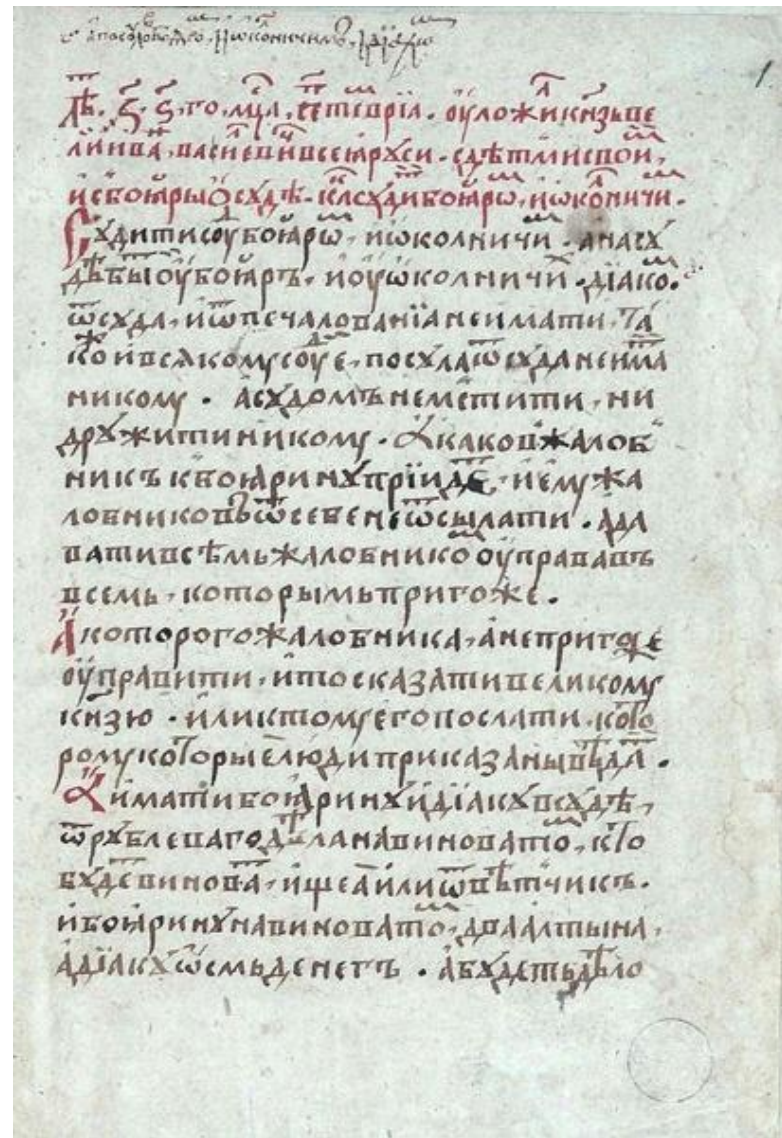 лѣⷮ҇. ҂ѕ҃. ѕ҃. го, мцⷭ҇а, сеⷫ҇тевріа. оуложиⷧ кнѧзь ве
лиⷦ҇и ива, васиⷧ҇евиⷱ҇ всеꙗ руси. с дѣтми своиⷨ,
и с боꙗры ѡ судѣ. каⷦ҇ судиⷮ҇ и боꙗрѡⷨ, и ѡкоⷧничиⷨ.
Судити суⷣ боꙗрѡⷨ, и ѡколничиⷨ. а на су
дѣ быⷮ҇ оу боꙗръ. и оу ѡколничиⷯ. діакоⷨ.
ѿ суда, и ѿ печалованіа не имати. та
коⷤ и всѧкому суⷣе, посула ѿ суда не имаⷮ҇
никому. а судомъ не мстити, ни
дружити никому. А каков жалоб
никъ к боꙗрину прїидеⷮ҇. и ему жа
лобниковъ ѿ себе не ѿсылати. а да
вати всѣмъ жалобникоⷨ оуправа въ
всемь, которымъ пригоже.
А которого жалобника, а не пригоже
оуправити, и то сказати великому
кнѧзю. или к тому его послати. кото
рому которые люди приказаны вѣдаⷮ҇.
А имати боꙗрину и діаку в судѣ,
ѿ рублева го дѣла на виноватоⷨ, кто
будеⷮ҇ виноваⷮ҇, ищеа или ѿвѣтчикъ.
и боꙗрину на виноватоⷨ, два алтына,
а діаку ѡсмь денегъ. а будеть дѣло